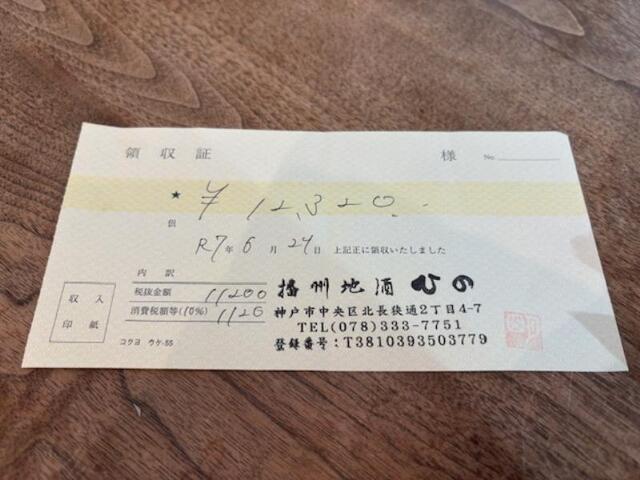 領収証 様 No.
★ ¥12,320.-
但
R7年6月24日 上記正に領収いたしました
内訳
収入印紙
税抜金額 11200
消費税額等(10%) 1120
コクヨ ウケ-55
播州地酒 ひの
神戸市中央区北長狭通2丁目4-7
TEL(078)333-7751
登録番号:T3810393503779